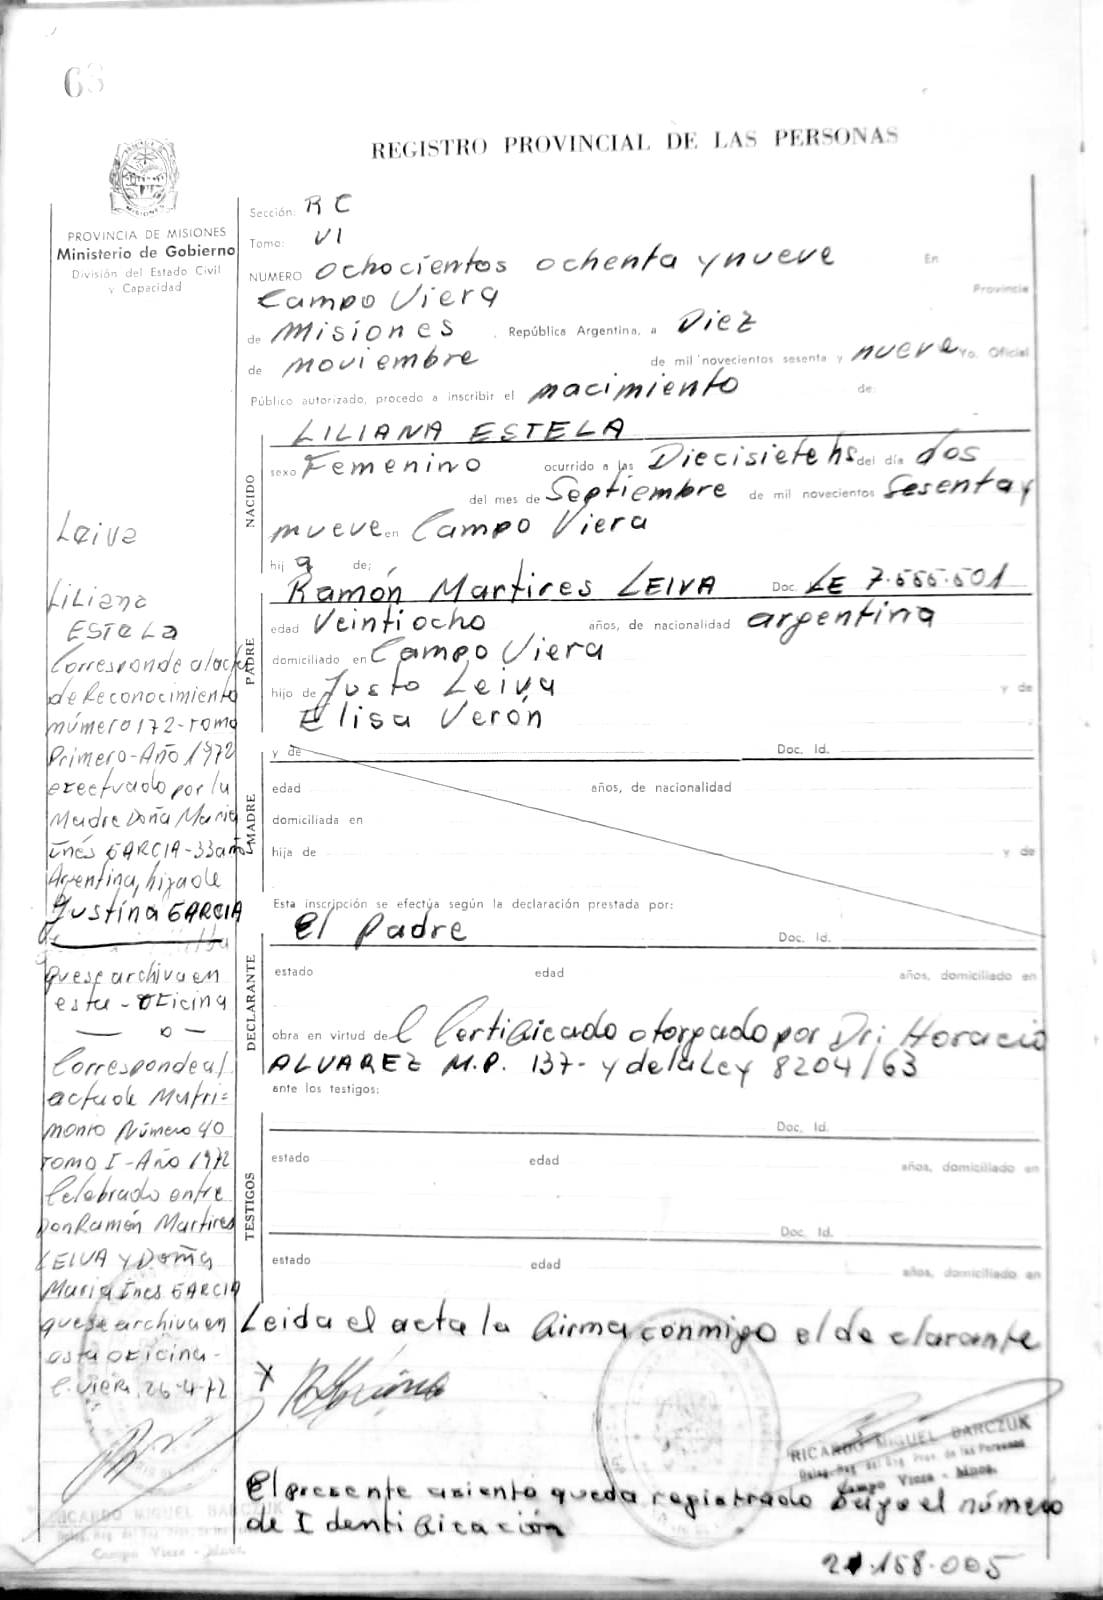 63
REGISTRO PROVINCIAL DE LAS PERSONAS
PROVINCIA DE MISIONES
Ministerio de Gobierno
División del Estado Civil
y Capacidad
Sección: RC
Tomo: VI
NUMERO Ochocientos ochenta y nueve En
Campo Viera Provincia
de Misiones . República Argentina, a Diez
de noviembre de mil novecientos sesenta y nueve Yo. Oficial
Público autorizado, procedo a inscribir el nacimiento de:
NACIDO
LILIANA ESTELA
sexo Femenino ocurrido a las Diecisiete hs del día dos
del mes de Septiembre de mil novecientos Sesenta y
nueve en Campo Viera
hij a de;
PADRE
Ramón Martires LEIVA Doc. LE 7.555.501
edad Veintiocho años, de nacionalidad argentina
domiciliado en Campo Viera
hijo de Justo Leiva y de
Elisa Verón
MADRE
y de Doc. Id.
edad años, de nacionalidad
domiciliada en
hija de y de
Esta inscripción se efectúa según la declaración prestada por:
DECLARANTE
el Padre Doc. Id.
estado edad años, domiciliado en
obra en virtud del Certificado otorgado por Dr: Horacio
ALVAREZ M.P. 137- y de la Ley 8204/63
ante los testigos:
TESTIGOS
Doc. Id.
estado edad años, domiciliado en
Doc. Id.
estado edad años, domiciliado en
Leida el acta la firma conmigo el declarante
X
RICARDO MIGUEL BARCZUK
Campo Viera - Mnes.
El presente asiento queda registrado bajo el número
de Identificación
21.158.005
Leiva
Liliana
ESTELA
Corresponde al acta
de Reconocimiento
número 172-Tomo
Primero-Año 1972
efectuado por la
Madre Doña Maria
Inés GARCIA-33 años
Argentina, hija de
Justina GARCIA
que se archiva en
esta-oficina
— o —
Corresponde al
acta de Matri=
monio Número 40
Tomo I-Año 1972
Celebrado entre
Don Ramón Martires
LEIVA y Doña
Maria Ines GARCIA
que se archiva en
esta oficina-
C. Viera, 26-4-72
RICARDO MIGUEL BARCZUK
Campo Viera - Mnes.